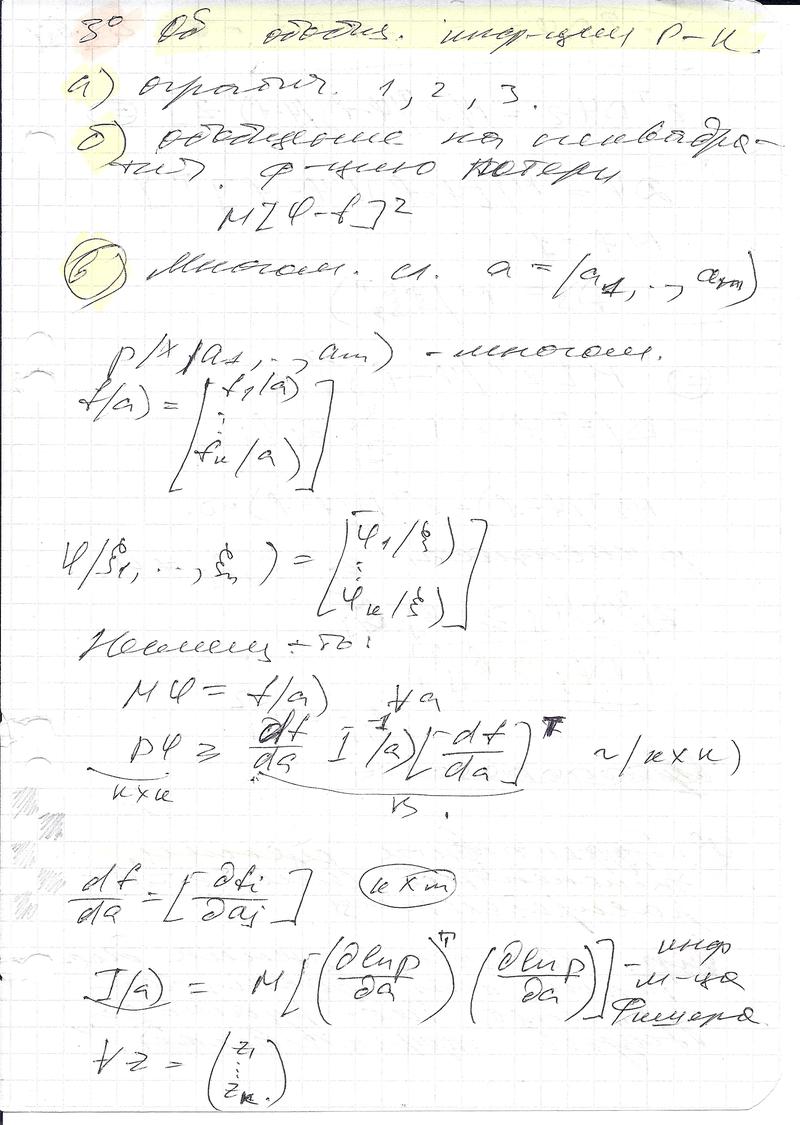 3° Об обобщ. инф-ции Р-К.
а) огранич. 1, 2, 3.
б) обобщение на неквадра-
тич. ф-цию потери
M[φ-f]²
в) Многом. сл. a = (a₁, .., aₘ)
p(x, (a₁, .., aₘ) - многом.
f(a) = [f₁(a)
⋮
fₖ(a)]
φ(ξ₁, ..., ξₙ) = [φ₁(ξ)
⋮
φₖ(ξ)]
Несмещ-ть:
Mφ = f(a) ∀a
Dφ ≥ df/da I⁻¹(a)[df/da]ᵀ ~ (k×k)
k×k B.
df/da = [∂fi/∂aj] (k×m)
I(a) = M[(∂lnp/∂a)ᵀ (∂lnp/∂a)] - инф
м-ца
Фишера
∀z = (z₁
⋮
zₖ.)